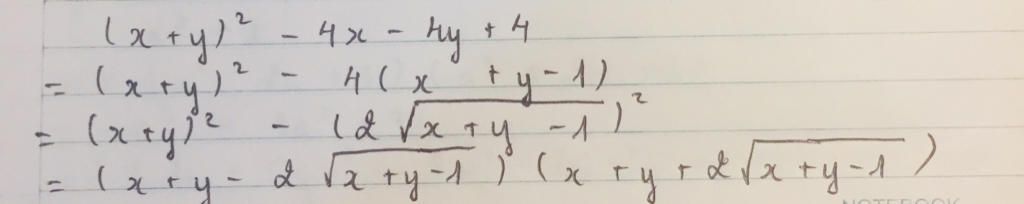 (x + y)² - 4x - 4y + 4
= (x + y)² - 4(x + y - 1)
= (x + y)² - (2√(x + y - 1))²
= (x + y - 2√(x + y - 1)) (x + y + 2√(x + y - 1))
NOTEBOOK